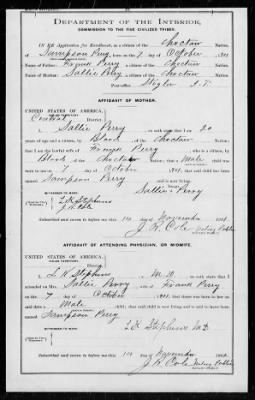 DEPARTMENT OF THE INTERIOR,
COMMISSION TO THE FIVE CIVILIZED TRIBES.
IN RE Application for Enrollment, as a citizen of the Choctaw Nation,
of Sampson Perry, born on the 7 day of October, 1901
Name of Father: Frank Perry a citizen of the Choctaw Nation.
Name of Mother: Sallie Perry a citizen of the Choctaw Nation.
Post-office Stigler I.T.
AFFIDAVIT OF MOTHER.
UNITED STATES OF AMERICA,
INDIAN TERRITORY,
Central District.
I, Sallie Perry, on oath state that I am 20
years of age and a citizen, by Blood, of the Choctaw Nation;
that I am the lawful wife of Frank Perry, who is a citizen, by
Blood of the Choctaw Nation; that a Male
child was born to me on 7 day of October, 1901, that said child has been named
Sampson Perry, and is now living.
Sallie Perry
Subscribed and sworn to before me this day of November, 1901
J. H. Cole
Notary Public.
AFFIDAVIT OF ATTENDING PHYSICIAN, OR MIDWIFE.
UNITED STATES OF AMERICA,
INDIAN TERRITORY,
District.
I, Stephens, M.D., on oath state that I
attended on Mrs. Sallie Perry, wife of Frank Perry
on the 7 day of October, 1901, that there was born to her on
said date a Male child; that said child is now living and is said to have been
named Sampson Perry
Stephens M.D.
Subscribed and sworn to before me this day of November, 1901
J. H. Cole Notary Public.